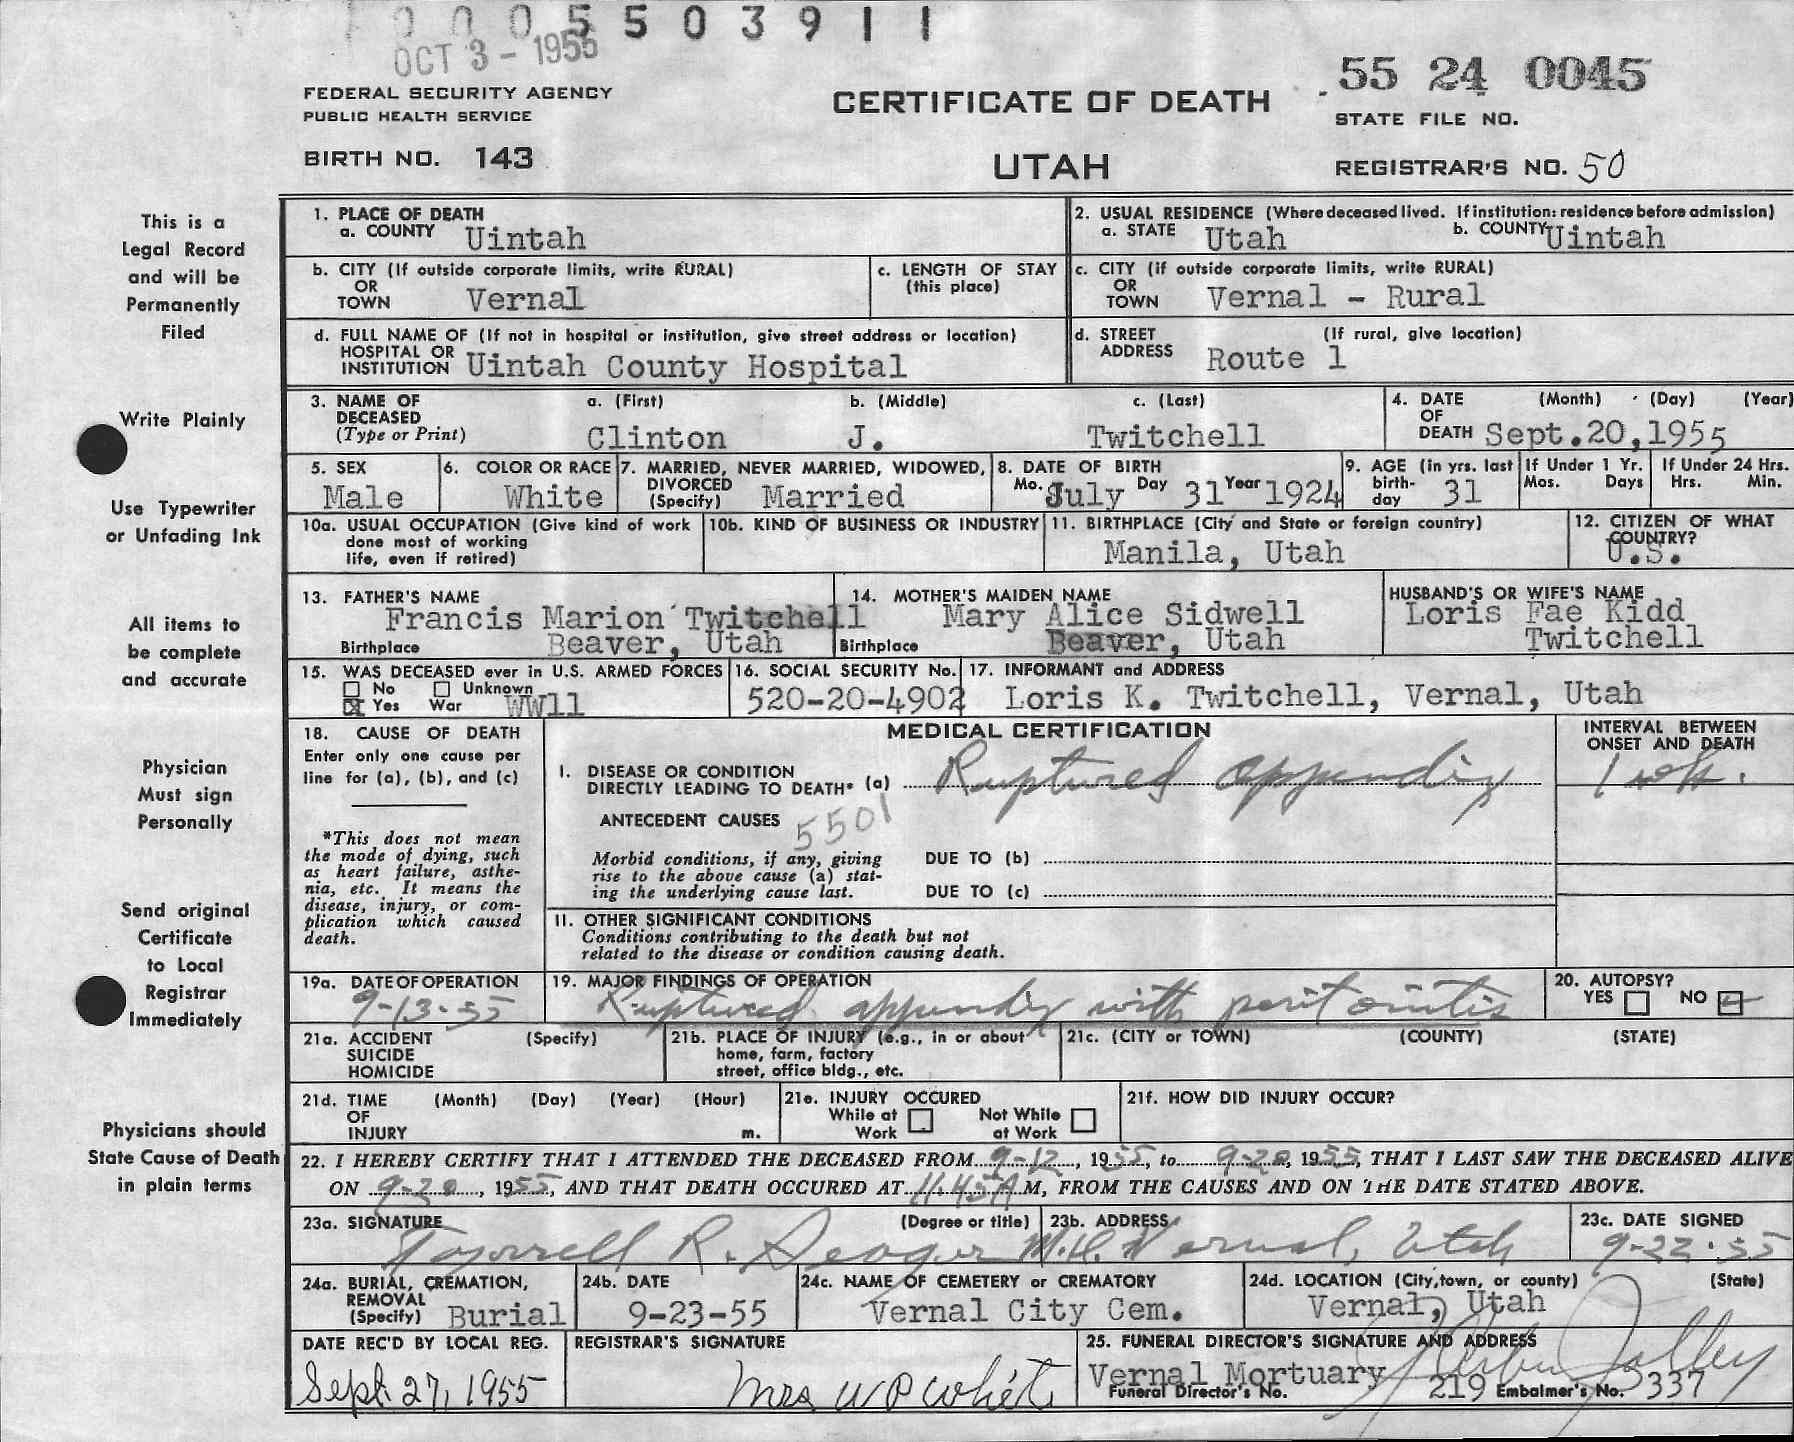 0005503911
OCT 3 - 1955
55 24 0045
FEDERAL SECURITY AGENCY
PUBLIC HEALTH SERVICE
CERTIFICATE OF DEATH
STATE FILE NO.
BIRTH NO. 143
UTAH
REGISTRAR'S NO. 50
This is a
Legal Record
and will be
Permanently
Filed
Write Plainly
Use Typewriter
or Unfading Ink
All items to
be complete
and accurate
Physician
Must sign
Personally
Send original
Certificate
to Local
Registrar
Immediately
Physicians should
State Cause of Death
in plain terms
1. PLACE OF DEATH
a. COUNTY Uintah
2. USUAL RESIDENCE (Where deceased lived. If institution: residence before admission)
a. STATE Utah b. COUNTY Uintah
b. CITY (If outside corporate limits, write RURAL)
OR
TOWN Vernal
c. LENGTH OF STAY
(this place)
c. CITY (if outside corporate limits, write RURAL)
OR
TOWN Vernal - Rural
d. FULL NAME OF (If not in hospital or institution, give street address or location)
HOSPITAL OR
INSTITUTION Uintah County Hospital
d. STREET (If rural, give location)
ADDRESS Route 1
3. NAME OF a. (First) b. (Middle) c. (Last)
DECEASED
(Type or Print) Clinton J. Twitchell
4. DATE (Month) (Day) (Year)
OF
DEATH Sept.20,1955
5. SEX
Male
6. COLOR OR RACE
White
7. MARRIED, NEVER MARRIED, WIDOWED,
DIVORCED
(Specify) Married
8. DATE OF BIRTH
Mo. July Day 31 Year 1924
9. AGE (in yrs. last
birth-
day 31
If Under 1 Yr.
Mos. Days
If Under 24 Hrs.
Hrs. Min.
10a. USUAL OCCUPATION (Give kind of work
done most of working
life, even if retired)
10b. KIND OF BUSINESS OR INDUSTRY
11. BIRTHPLACE (City and State or foreign country)
Manila, Utah
12. CITIZEN OF WHAT
COUNTRY?
U.S.
13. FATHER'S NAME
Francis Marion Twitchell
Birthplace Beaver, Utah
14. MOTHER'S MAIDEN NAME
Mary Alice Sidwell
Birthplace Beaver, Utah
HUSBAND'S OR WIFE'S NAME
Loris Fae Kidd
Twitchell
15. WAS DECEASED ever in U.S. ARMED FORCES
No Unknown
Yes War WW11
16. SOCIAL SECURITY No.
520-20-4902
17. INFORMANT and ADDRESS
Loris K. Twitchell, Vernal, Utah
18. CAUSE OF DEATH
Enter only one cause per
line for (a), (b), and (c)
*This does not mean
the mode of dying, such
as heart failure, asthe-
nia, etc. It means the
disease, injury, or com-
plication which caused
death.
MEDICAL CERTIFICATION
INTERVAL BETWEEN
ONSET AND DEATH
I. DISEASE OR CONDITION
DIRECTLY LEADING TO DEATH* (a) Ruptured appendix 1 wk.
ANTECEDENT CAUSES 5501
Morbid conditions, if any, giving
rise to the above cause (a) stat-
ing the underlying cause last.
DUE TO (b)
DUE TO (c)
II. OTHER SIGNIFICANT CONDITIONS
Conditions contributing to the death but not
related to the disease or condition causing death.
19a. DATE OF OPERATION
9-13-55
19. MAJOR FINDINGS OF OPERATION
Ruptured appendix with peritonitis
20. AUTOPSY?
YES NO
21a. ACCIDENT (Specify)
SUICIDE
HOMICIDE
21b. PLACE OF INJURY (e.g., in or about
home, farm, factory
street, office bldg., etc.
21c. (CITY or TOWN) (COUNTY) (STATE)
21d. TIME (Month) (Day) (Year) (Hour)
OF
INJURY m.
21e. INJURY OCCURED
While at Work
Not While at Work
21f. HOW DID INJURY OCCUR?
22. I HEREBY CERTIFY THAT I ATTENDED THE DECEASED FROM 9-12, 1955, to 9-20, 1955, THAT I LAST SAW THE DECEASED ALIVE
ON 9-20, 1955, AND THAT DEATH OCCURED AT 11:45A M, FROM THE CAUSES AND ON THE DATE STATED ABOVE.
23a. SIGNATURE (Degree or title)
R. Seager M.D.
23b. ADDRESS
Vernal, Utah
23c. DATE SIGNED
9-22-55
24a. BURIAL, CREMATION,
REMOVAL
(Specify) Burial
24b. DATE
9-23-55
24c. NAME OF CEMETERY or CREMATORY
Vernal City Cem.
24d. LOCATION (City,town, or county) (State)
Vernal, Utah
DATE REC'D BY LOCAL REG.
Sept. 27, 1955
REGISTRAR'S SIGNATURE
Mrs W P White
25. FUNERAL DIRECTOR'S SIGNATURE AND ADDRESS
Vernal Mortuary
Funeral Director's No. 219 Embalmer's No. 337